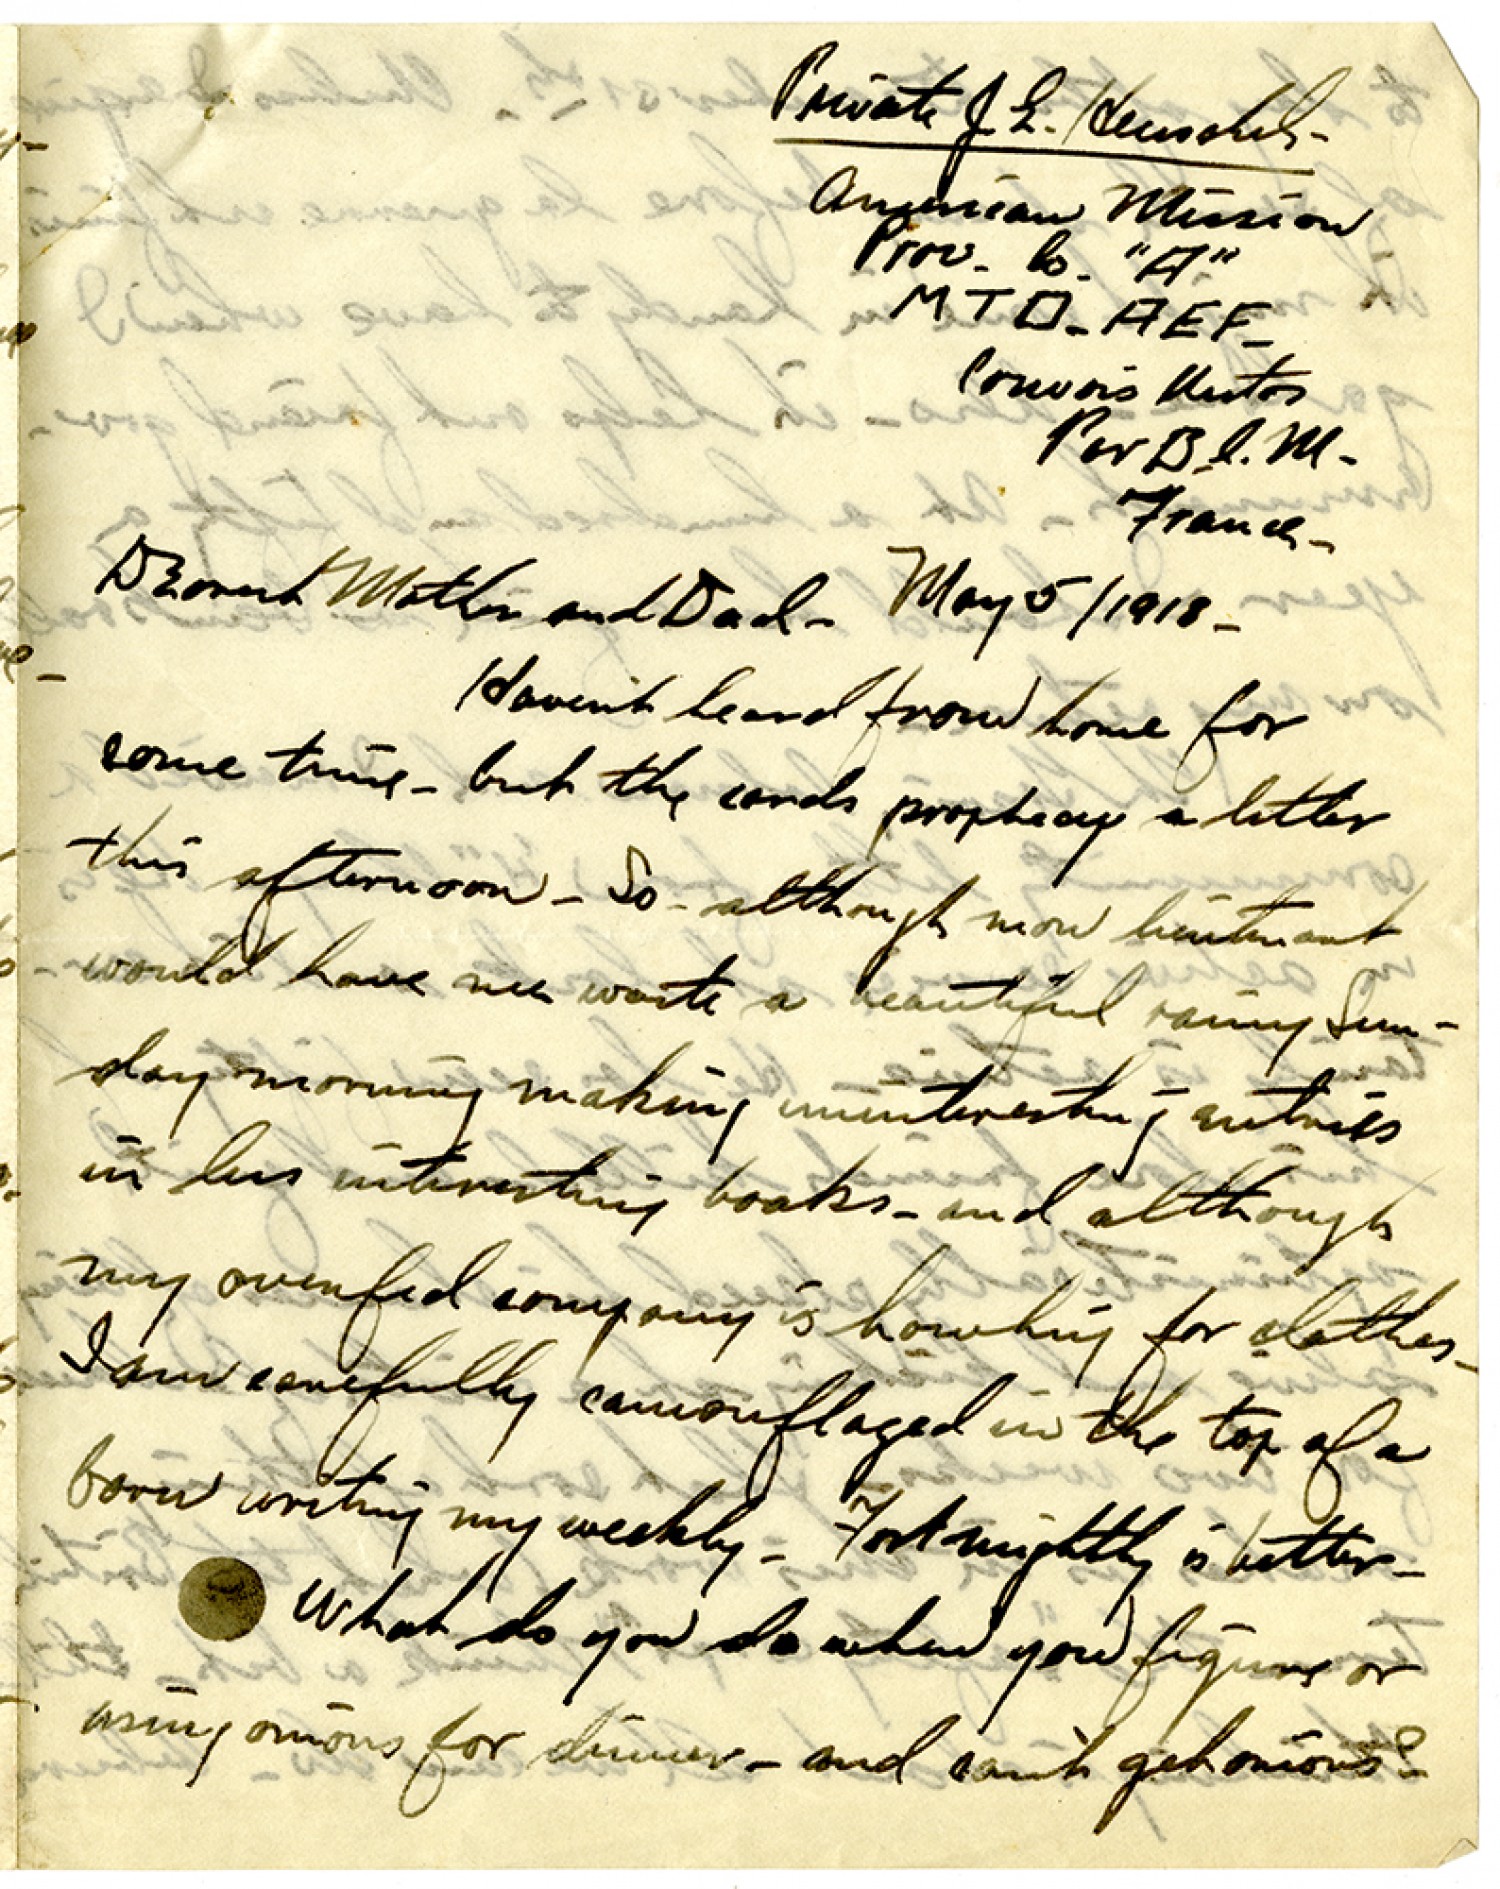 Private J. E. Henschel-
American Mission
Prov. Co. "A"
M T D - A E F -
Convois Autos
Par B. C. M -
France -
Dearest Mother and Dad - May 5/1918 -
Haven't heard from home for
some time - but the cards prophecy a letter
this afternoon - So - although mon lieutenant
would have me waste a beautiful rainy Sun-
day morning making uninteresting entries
in less interesting books - and although
my overfed company is howling for clothes -
I am carefully camouflaged in the top of a
barn writing my weekly - Fortnightly is better -
What do you do when you figure or
using onions for dinner - and can't get onions? -